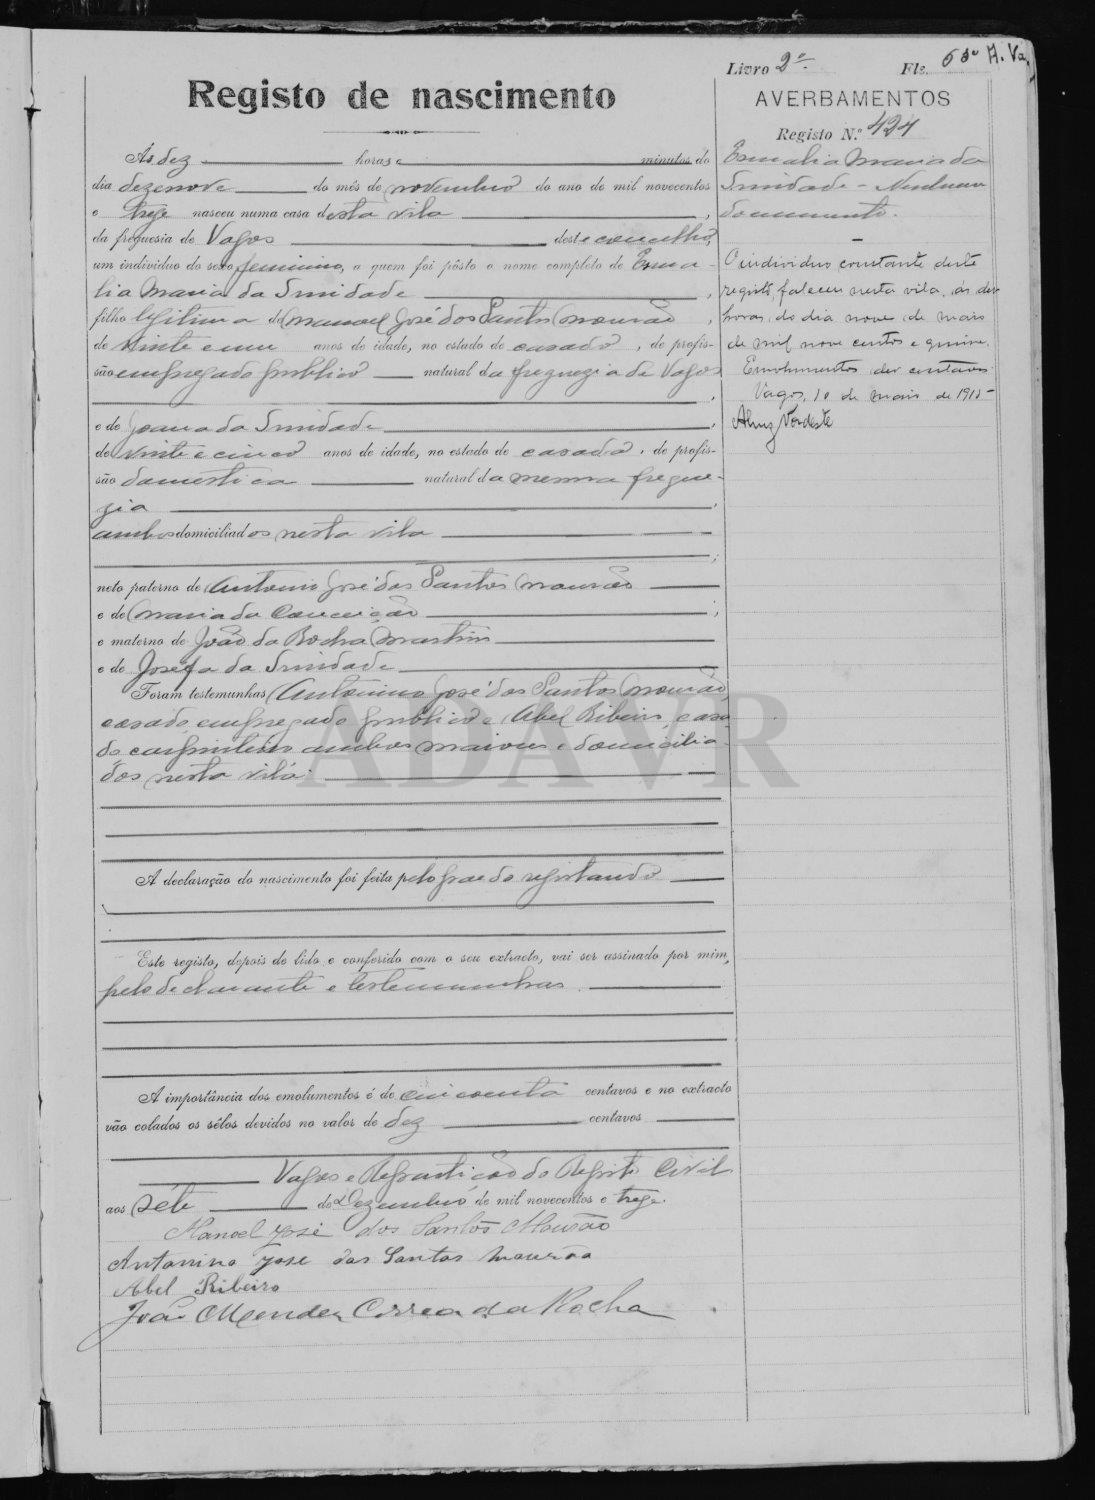 Livro 2º Fls. 65º H. Va.
Registo de nascimento
AVERBAMENTOS
Registo N.º 424
Ás dez horas e minutos do
dia dezenove do mês de novembro do ano de mil novecentos
e treze nasceu numa casa desta vila,
da freguesia de Vagos deste concelho,
um individuo do sexo feminino, a quem foi pôsto o nome completo de Erma-
lia Maria da Trindade,
filho legitima de Manoel José dos Santos Mourão,
de vinte e um anos de idade, no estado de casado, de profis-
são empregado publico natural da freguezia de Vagos,
e de Joana da Trindade,
de vinte e cinco anos de idade, no estado de casada, de profis-
são domestica natural da mesma fregue-
zia,
ambos domiciliados nesta vila;
neto paterno de Antonio José dos Santos Mourão
e de Maria da Conceição;
e materno de João da Rocha Martins
e de Josefa da Trindade
Foram testemunhas Antonino José dos Santos Mourão,
casado, empregado publico e Abel Ribeiro, casa-
do carpinteiro ambos maiores e domicilia-
dos nesta vila.
A declaração do nascimento foi feita pelo pae do registando
Este registo, depois de lido e conferido com o seu extracto, vai ser assinado por mim,
pelo declarante e testemunhas.
A importância dos emolumentos é de cincoenta centavos e no extracto
vão colados os sêlos devidos no valor de dez centavos
Vagos e Repartição do Registo Civil
aos sete de Dezembro de mil novecentos e treze.
Manoel José dos Santos Mourão
Antonino José dos Santos Mourão
Abel Ribeiro
João Mendes Correa da Rocha
Ermalia Maria da
Trindade - Nenhum
documento.
O individuo constante deste
registo, faleceu nesta vila, ás dez
horas do dia nove de maio
de mil nove centos e quinze.
Emolumentos dez centavos
Vagos, 10 de maio de 1915
ADAVR